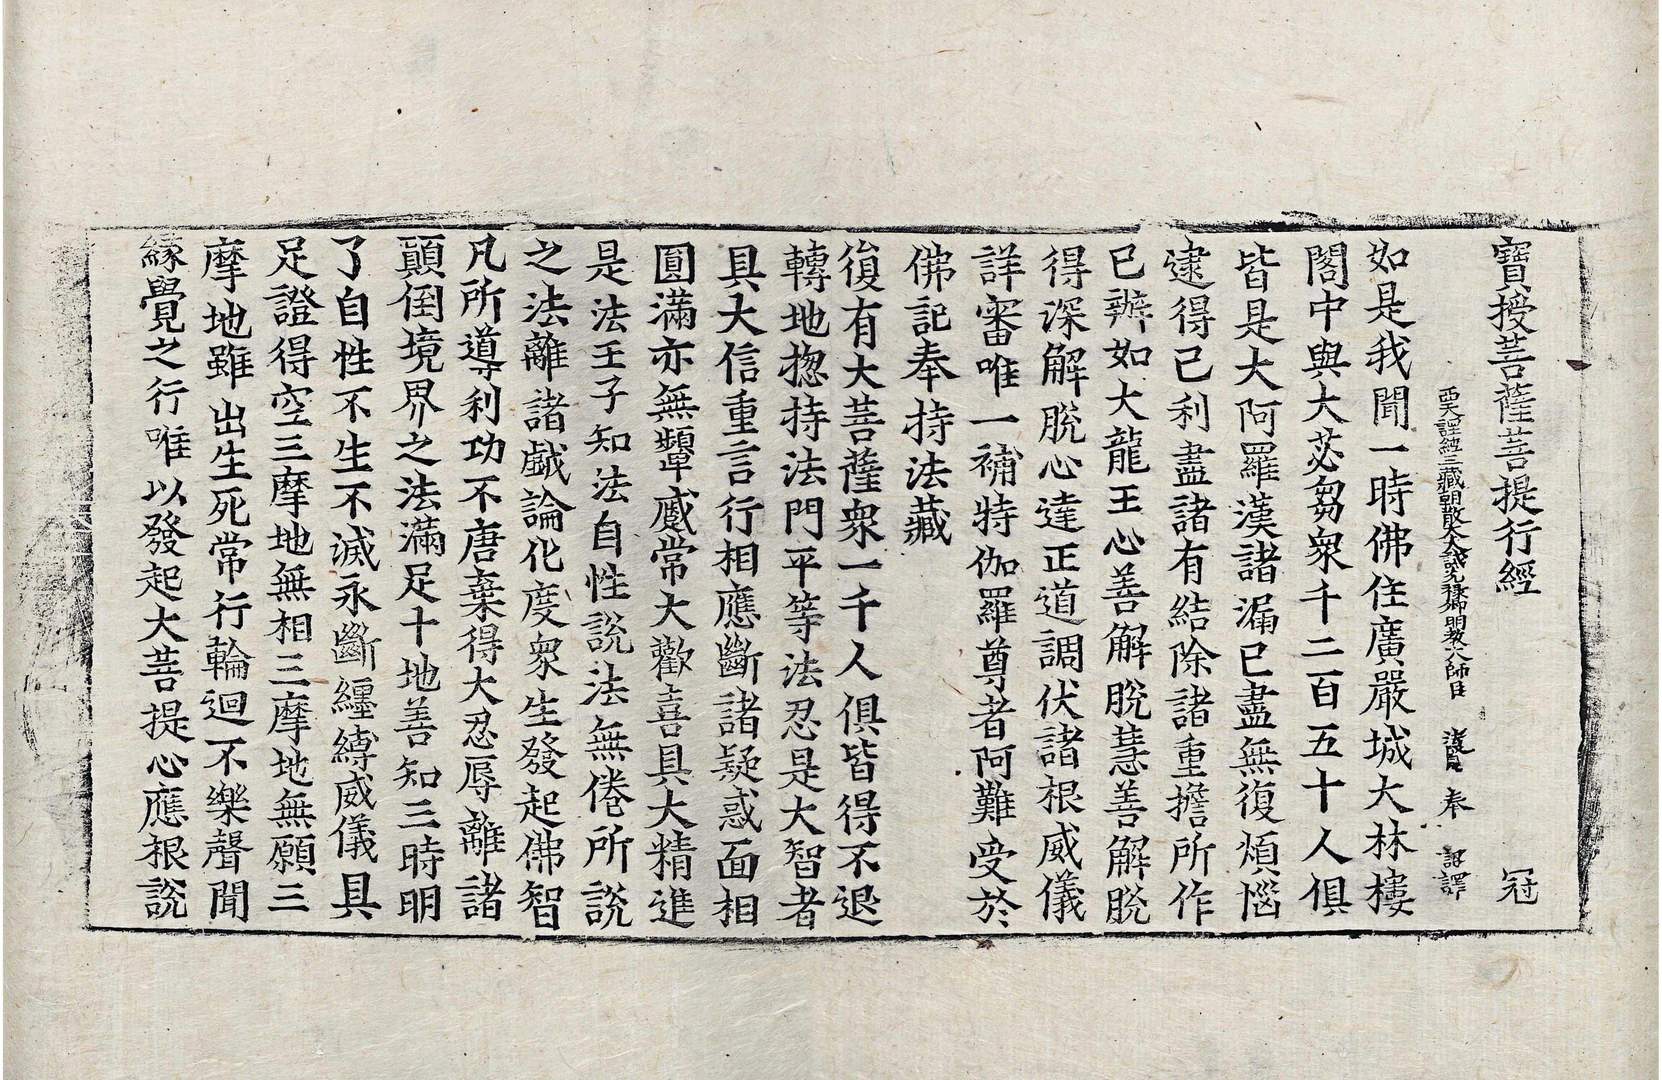 寶授菩薩菩提行經 冠
西天譯經三藏朝散大夫試光祿卿明教大師臣 法賢 奉 詔譯
如是我聞一時佛住廣嚴城大林樓
閣中與大苾芻衆千二百五十人俱
皆是大阿羅漢諸漏已盡無復煩惱
逮得己利盡諸有結除諸重擔所作
已辦如大龍王心善解脫慧善解脫
得深解脫心達正道調伏諸根威儀
詳審唯一補特伽羅尊者阿難受於
佛記奉持法藏
復有大菩薩衆一千人俱皆得不退
轉地揔持法門平等法忍是大智者
具大信重言行相應斷諸疑惑面相
圓滿亦無顰慼常大歡喜具大精進
是法王子知法自性說法無倦所說
之法離諸戲論化度衆生發起佛智
凡所導利功不唐棄得大忍辱離諸
顛倒境界之法滿足十地善知三時明
了自性不生不滅永斷纏縛威儀具
足證得空三摩地無相三摩地無願三
摩地雖出生死常行輪迴不樂聲聞
緣覺之行唯以發起大菩提心應根說